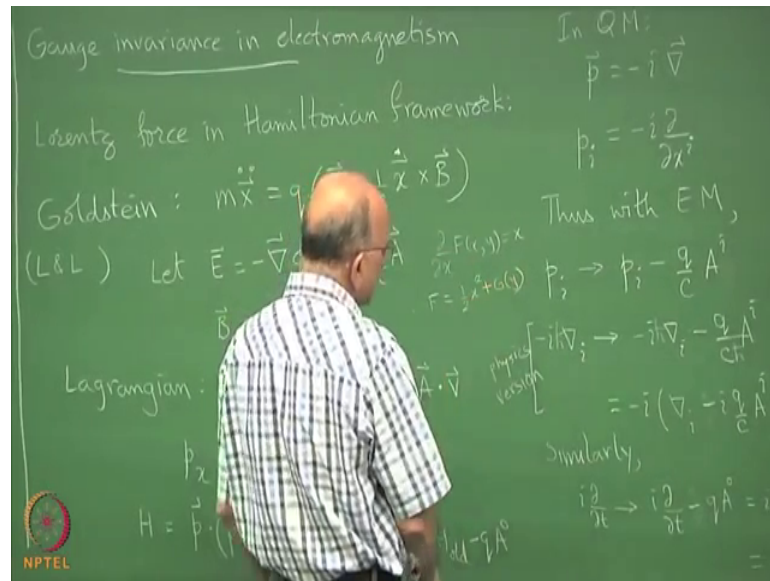 Gauge invariance in electromagnetism
Lorentz force in Hamiltonian framework:
Goldstein : m\ddot{\vec{x}} = q ( \dot{\vec{x}} × \vec{B} )
(L&L) Let \vec{E} = -\vec{∇} \vec{A}
\vec{B}
∂/∂x F(x,y) = x
F = ½x² + G(y)
Lagrangian : \vec{A} · \vec{v}
p_x
H = \vec{p} · ( old - qA⁰
In QM:
\vec{p} = -i \vec{∇}
p_i = -i ∂/∂x^i
Thus with EM,
p_i → p_i - q/c A^i
physics version [ -iħ∇_i → -iħ∇_i - q/cħ A^i
= -i (∇_i - i q/c A^i
Similarly,
i ∂/∂t → i ∂/∂t - qA⁰ = i
=
NPTEL